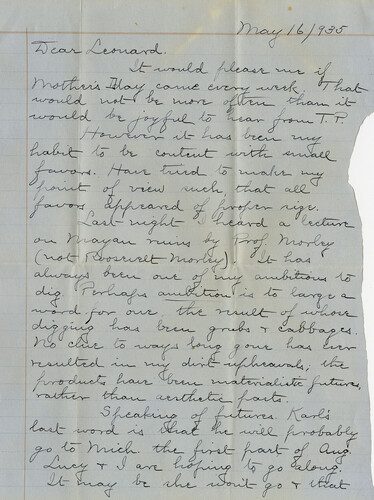 May 16/935
Dear Leonard.
It would please me if
Mother's Day came every week. That
would not be more often than it
would be joyful to hear from T.P.
However it has been my
habit to be content with small
favors. Have tried to make my
point of view such, that all
favors appeared of proper size.
Last night I heard a lecture
on Mayan ruins by Prof. Morley
(not Roosevelt Morley). It has
always been one of my ambitions to
dig. Perhaps ambition is to large a
word for one, the result of whose
digging has been grubs & cabbages.
No clue to ways long gone has ever
resulted in my dirt upheavals; the
products have been materialistic futures,
rather than aesthetic pasts.
Speaking of futures. Karl's
last word is that he will probably
go to Mich. the first part of Aug.
Lucy & I are hoping to go along.
It may be she won't go & that